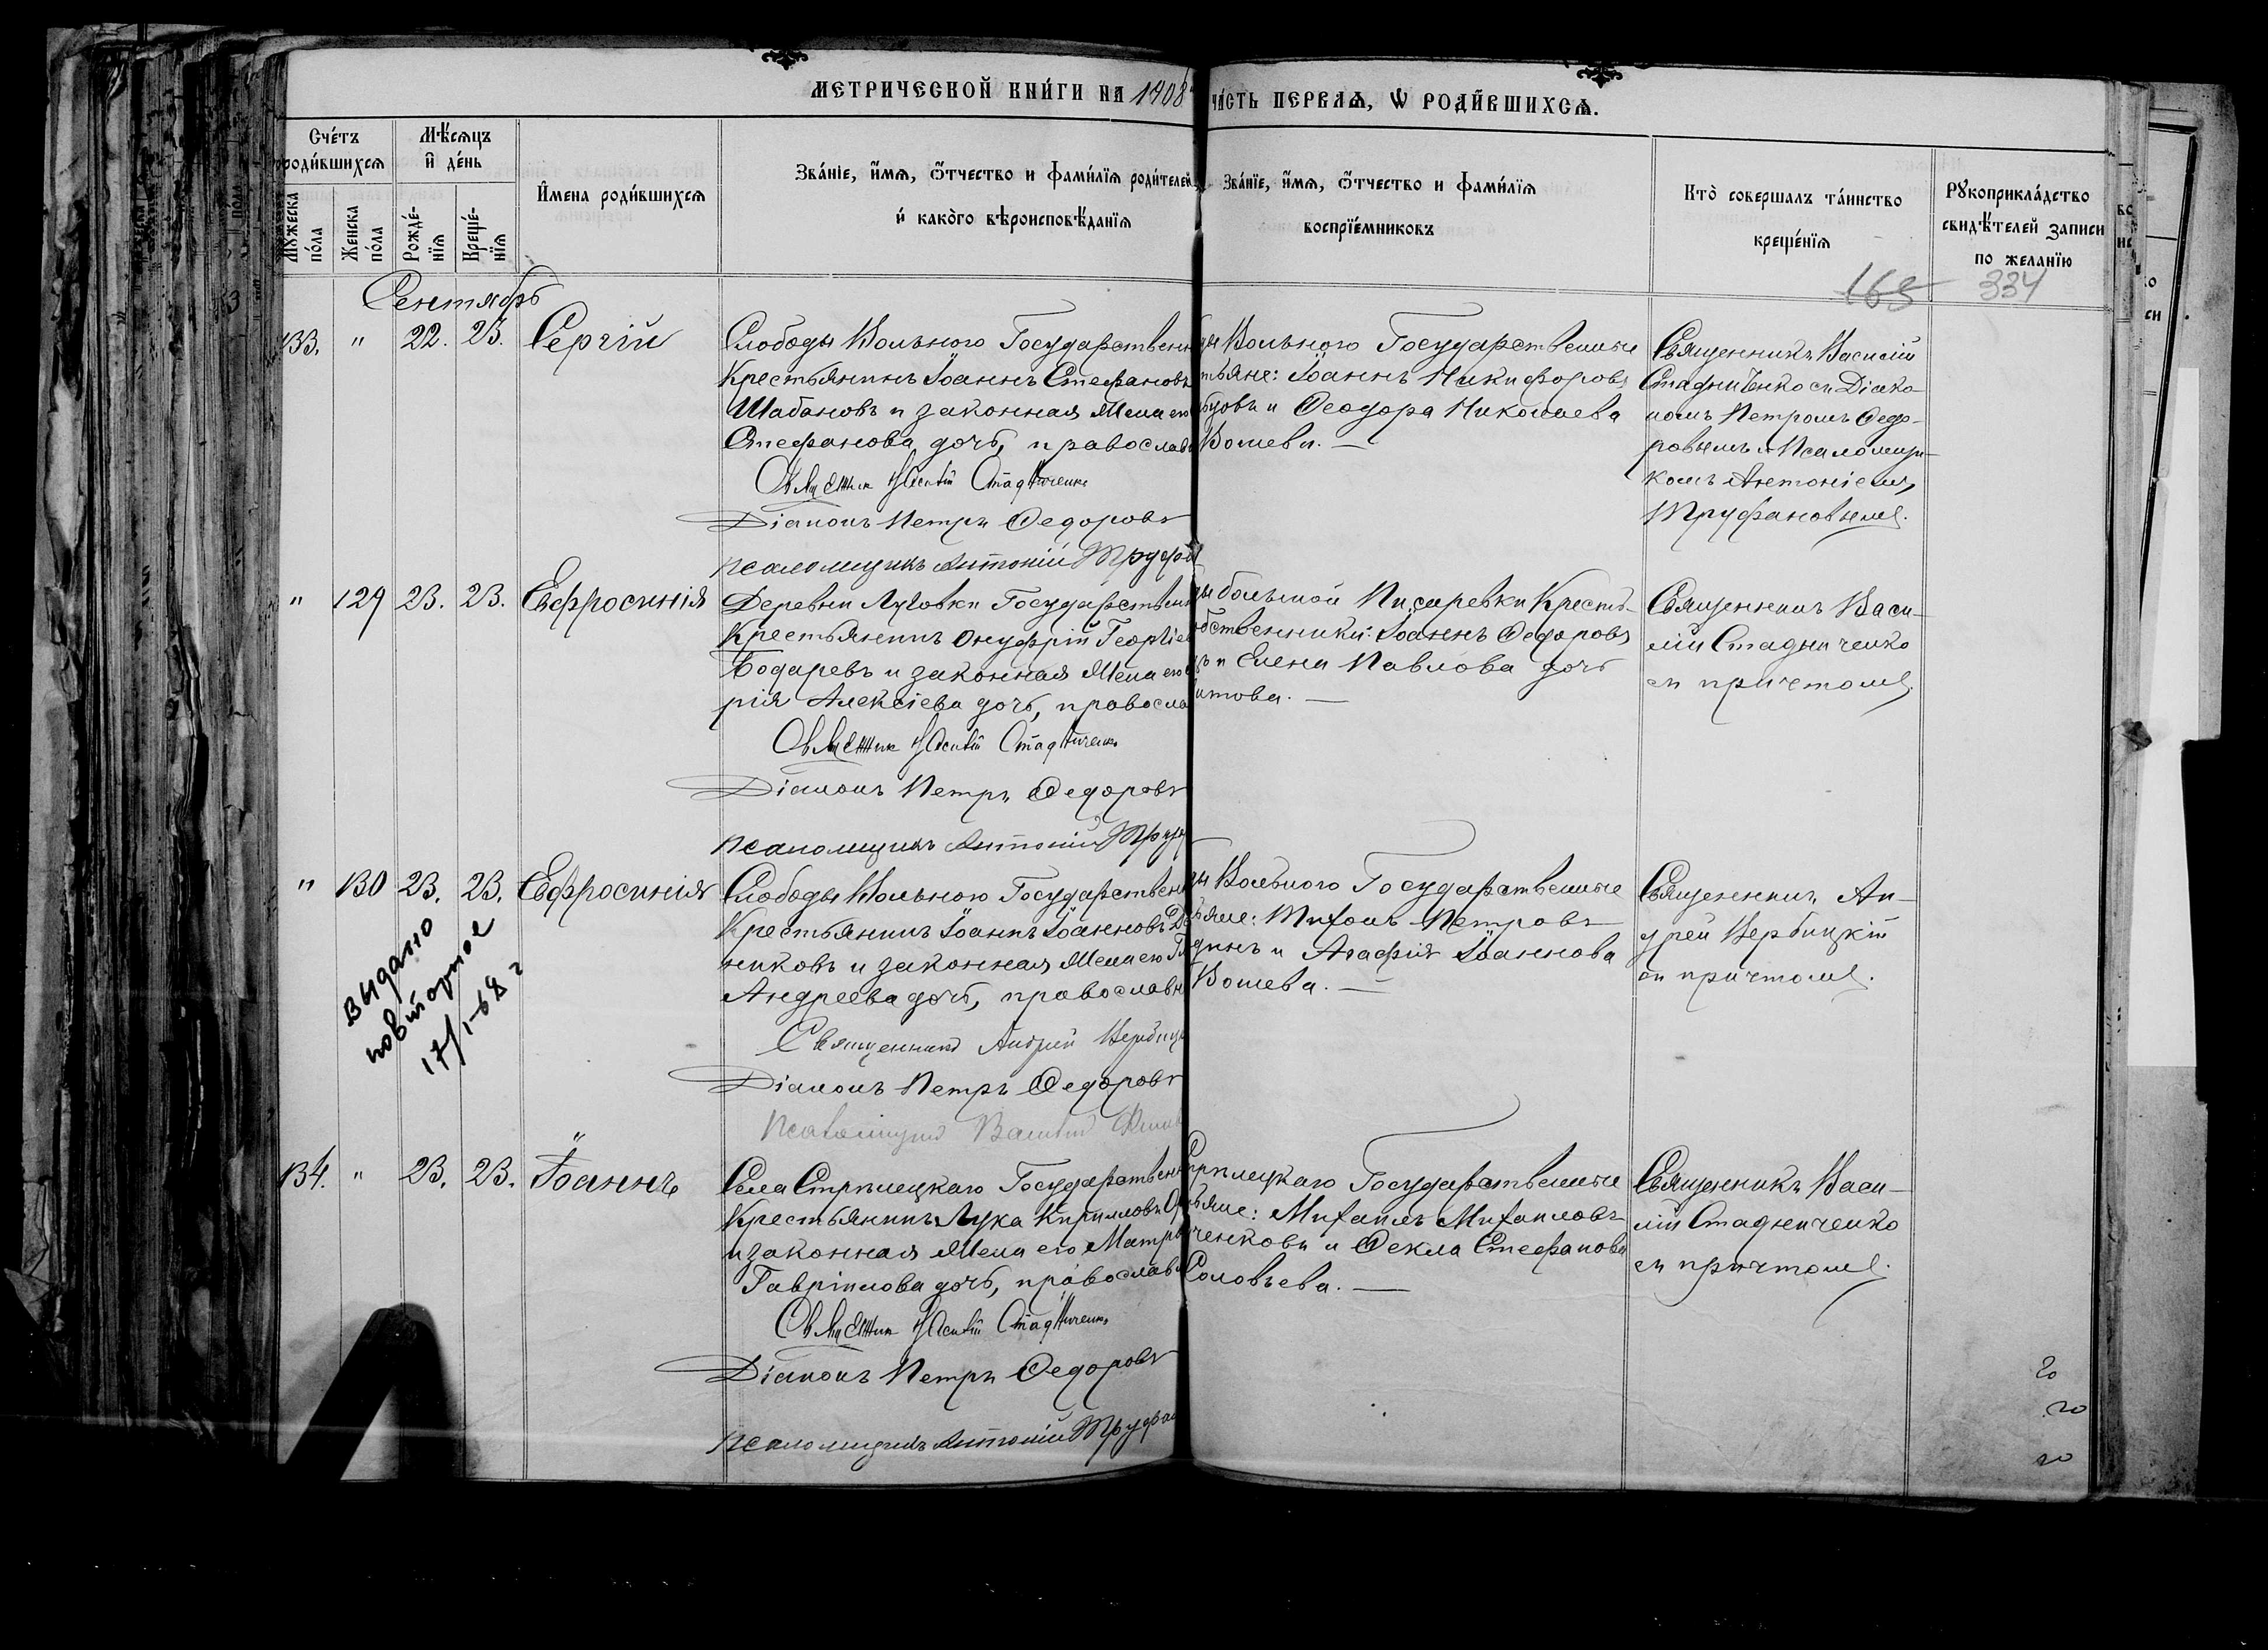 МЕТРИЧЕСКОЙ КНИ́ГИ НА 1908
ЧА́СТЬ ПЕРВАѦ, Ѡ РОДИ́ВШИХСѦ.
Сче́тъ роди́вшихсѧ
Мѣ́сѧцъ и҆ де́нь
Мꙋ́жеска по́ла
Женска по́ла
Рожде́-нїѧ
Креще́-нїѧ
И҆мена роди́вшихсѧ
Зва́нїе, и҆́мѧ, ѻ҆́тчество и фами́лїѧ роди́телей
и҆ како́го вѣроисповѣ́данїѧ
Зва́нїе, и҆́мѧ, ѻ҆́тчество и фами́лїѧ
воспрїе́мниковъ
Кто̀ совершалъ та́инство
креще́нїѧ
Рꙋкоприкла́дство
свидѣ́телей записи
по жела́нїю
165 334
Сентябрь
133. " 22. 23. Сергій
Слободы Вольного Государственн
Крестьянинъ Іоаннъ Стефановъ
Шабановъ и законная Жена его
Стефанова дочь, православн
Священник Василій Стадниченко
Діаконъ Петръ Федоровъ
псаломщикъ Антоній Труфан
ды Вольного Государственные
тьяне: Іоаннъ Никифоровъ
и Феодора Николаева
Вотева. —
Священникъ Василій
Стадниченко съ Діако-
номъ Петромъ Федо-
ровымъ и Псаломщи-
комъ Антоніемъ
Труфановымъ.
" 129 23. 23. Евфросинія
Деревни Луговки Государственн
Крестьянинъ Онуфрій Георгіев
Бодаревъ и законная Жена его
рія Алексіева дочь, правосла
Священник Василій Стадниченко
Діаконъ Петръ Федоровъ
псаломщикъ Антоній Труф
ды большой Писаревки Кресть-
бственники: Іоаннъ Федоровъ
и Елена Павлова дочь
итова. —
Священникъ Васи-
лій Стадниченко
съ причтомъ.
" 130 23. 23. Евфросинія
Выдано
повторное
17/1-68 г
Слободы Вольного Государственн
Крестьянинъ Іоаннъ Іоанновъ
никовъ и законная Жена его
Андреева дочь, православн
Священникъ Андрей Вербицк
Діаконъ Петръ Федоровъ
Псаломщикъ
ды Вольного Государственные
ьяне: Тихонъ Петровъ
динъ и Агафія Іоаннова
Вотева. —
Священникъ Ан-
дрей Вербицкій
съ причтомъ.
134. " 23. 23. Іоаннъ
Села Стрѣлецкаго Государственн
Крестьянинъ Лука Кирилловъ
и законная Жена его Матр
Гавріилова дочь, православн
Священник Василій Стадниченко
Діаконъ Петръ Федоровъ
псаломщикъ Антоній Труфан
Стрѣлецкаго Государственные
ьяне: Михаилъ Михаиловъ
ченковъ и Фекла Стефанова
Соловьева. —
Священникъ Васи-
лій Стадниченко
съ причтомъ.
20
20
20